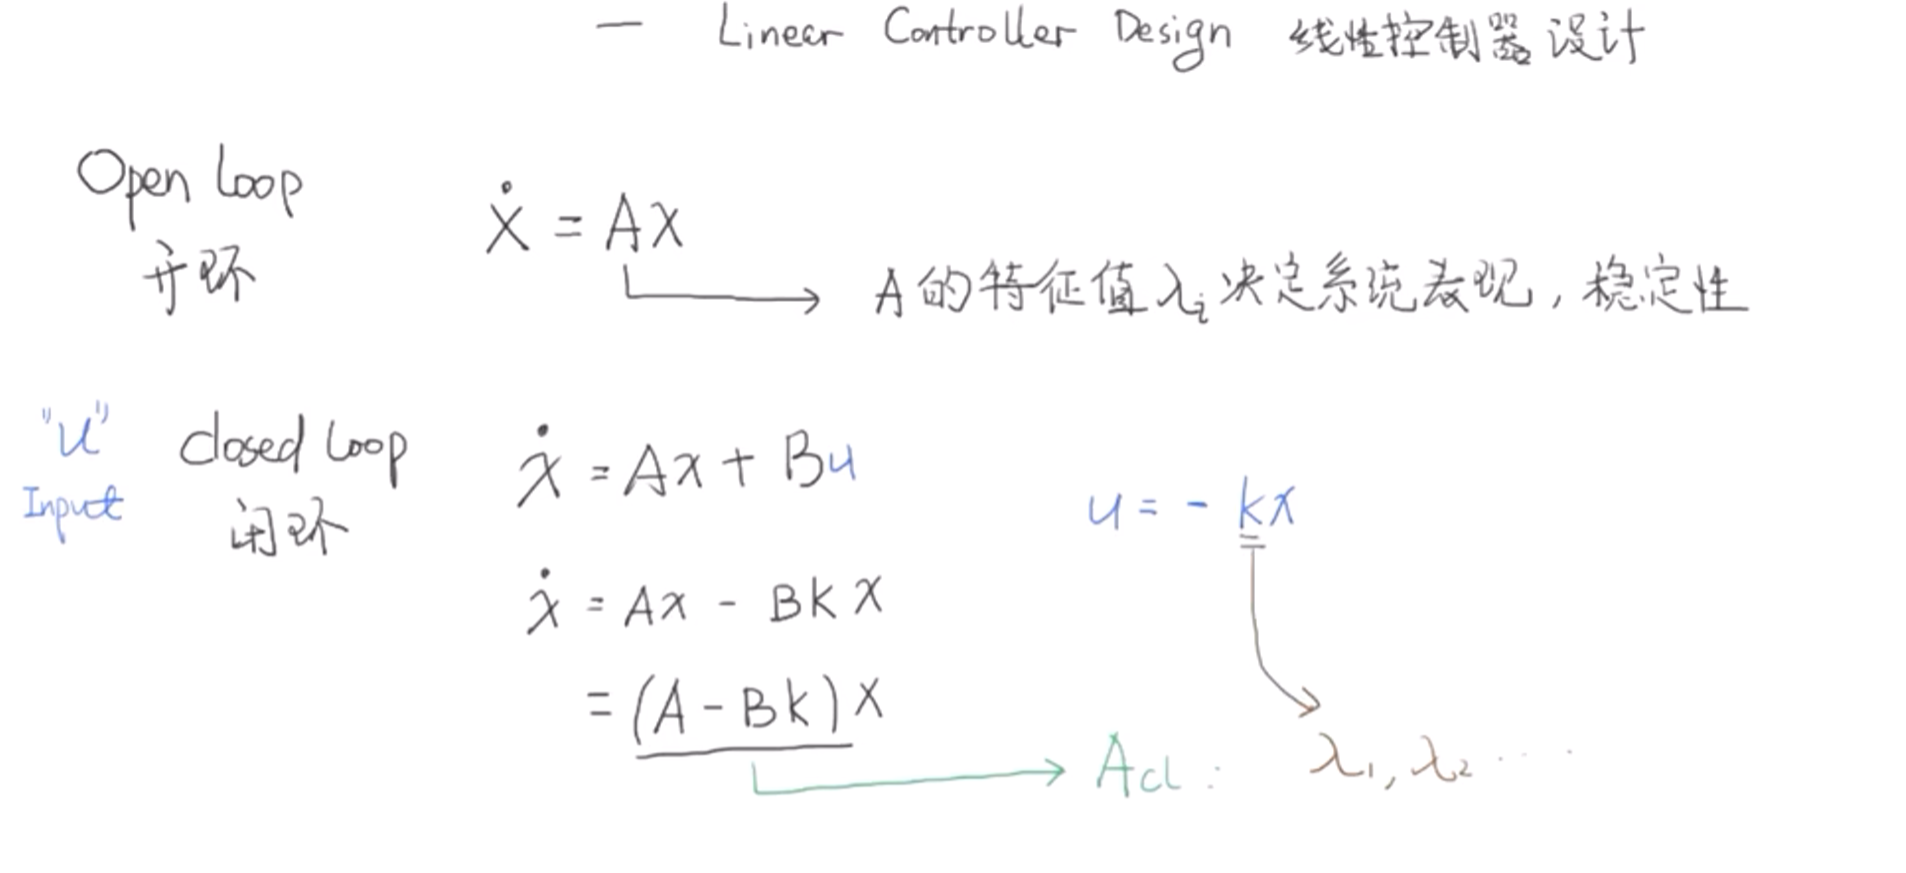 — Linear Controller Design 线性控制器设计
Open loop
开环
ẋ = Ax
A的特征值λi决定系统表现，稳定性
"u"
Input
closed loop
闭环
ẋ = Ax + Bu
u = - kx
ẋ = Ax - BKx
= (A - BK)x
Acl : λ1, λ2 ·····